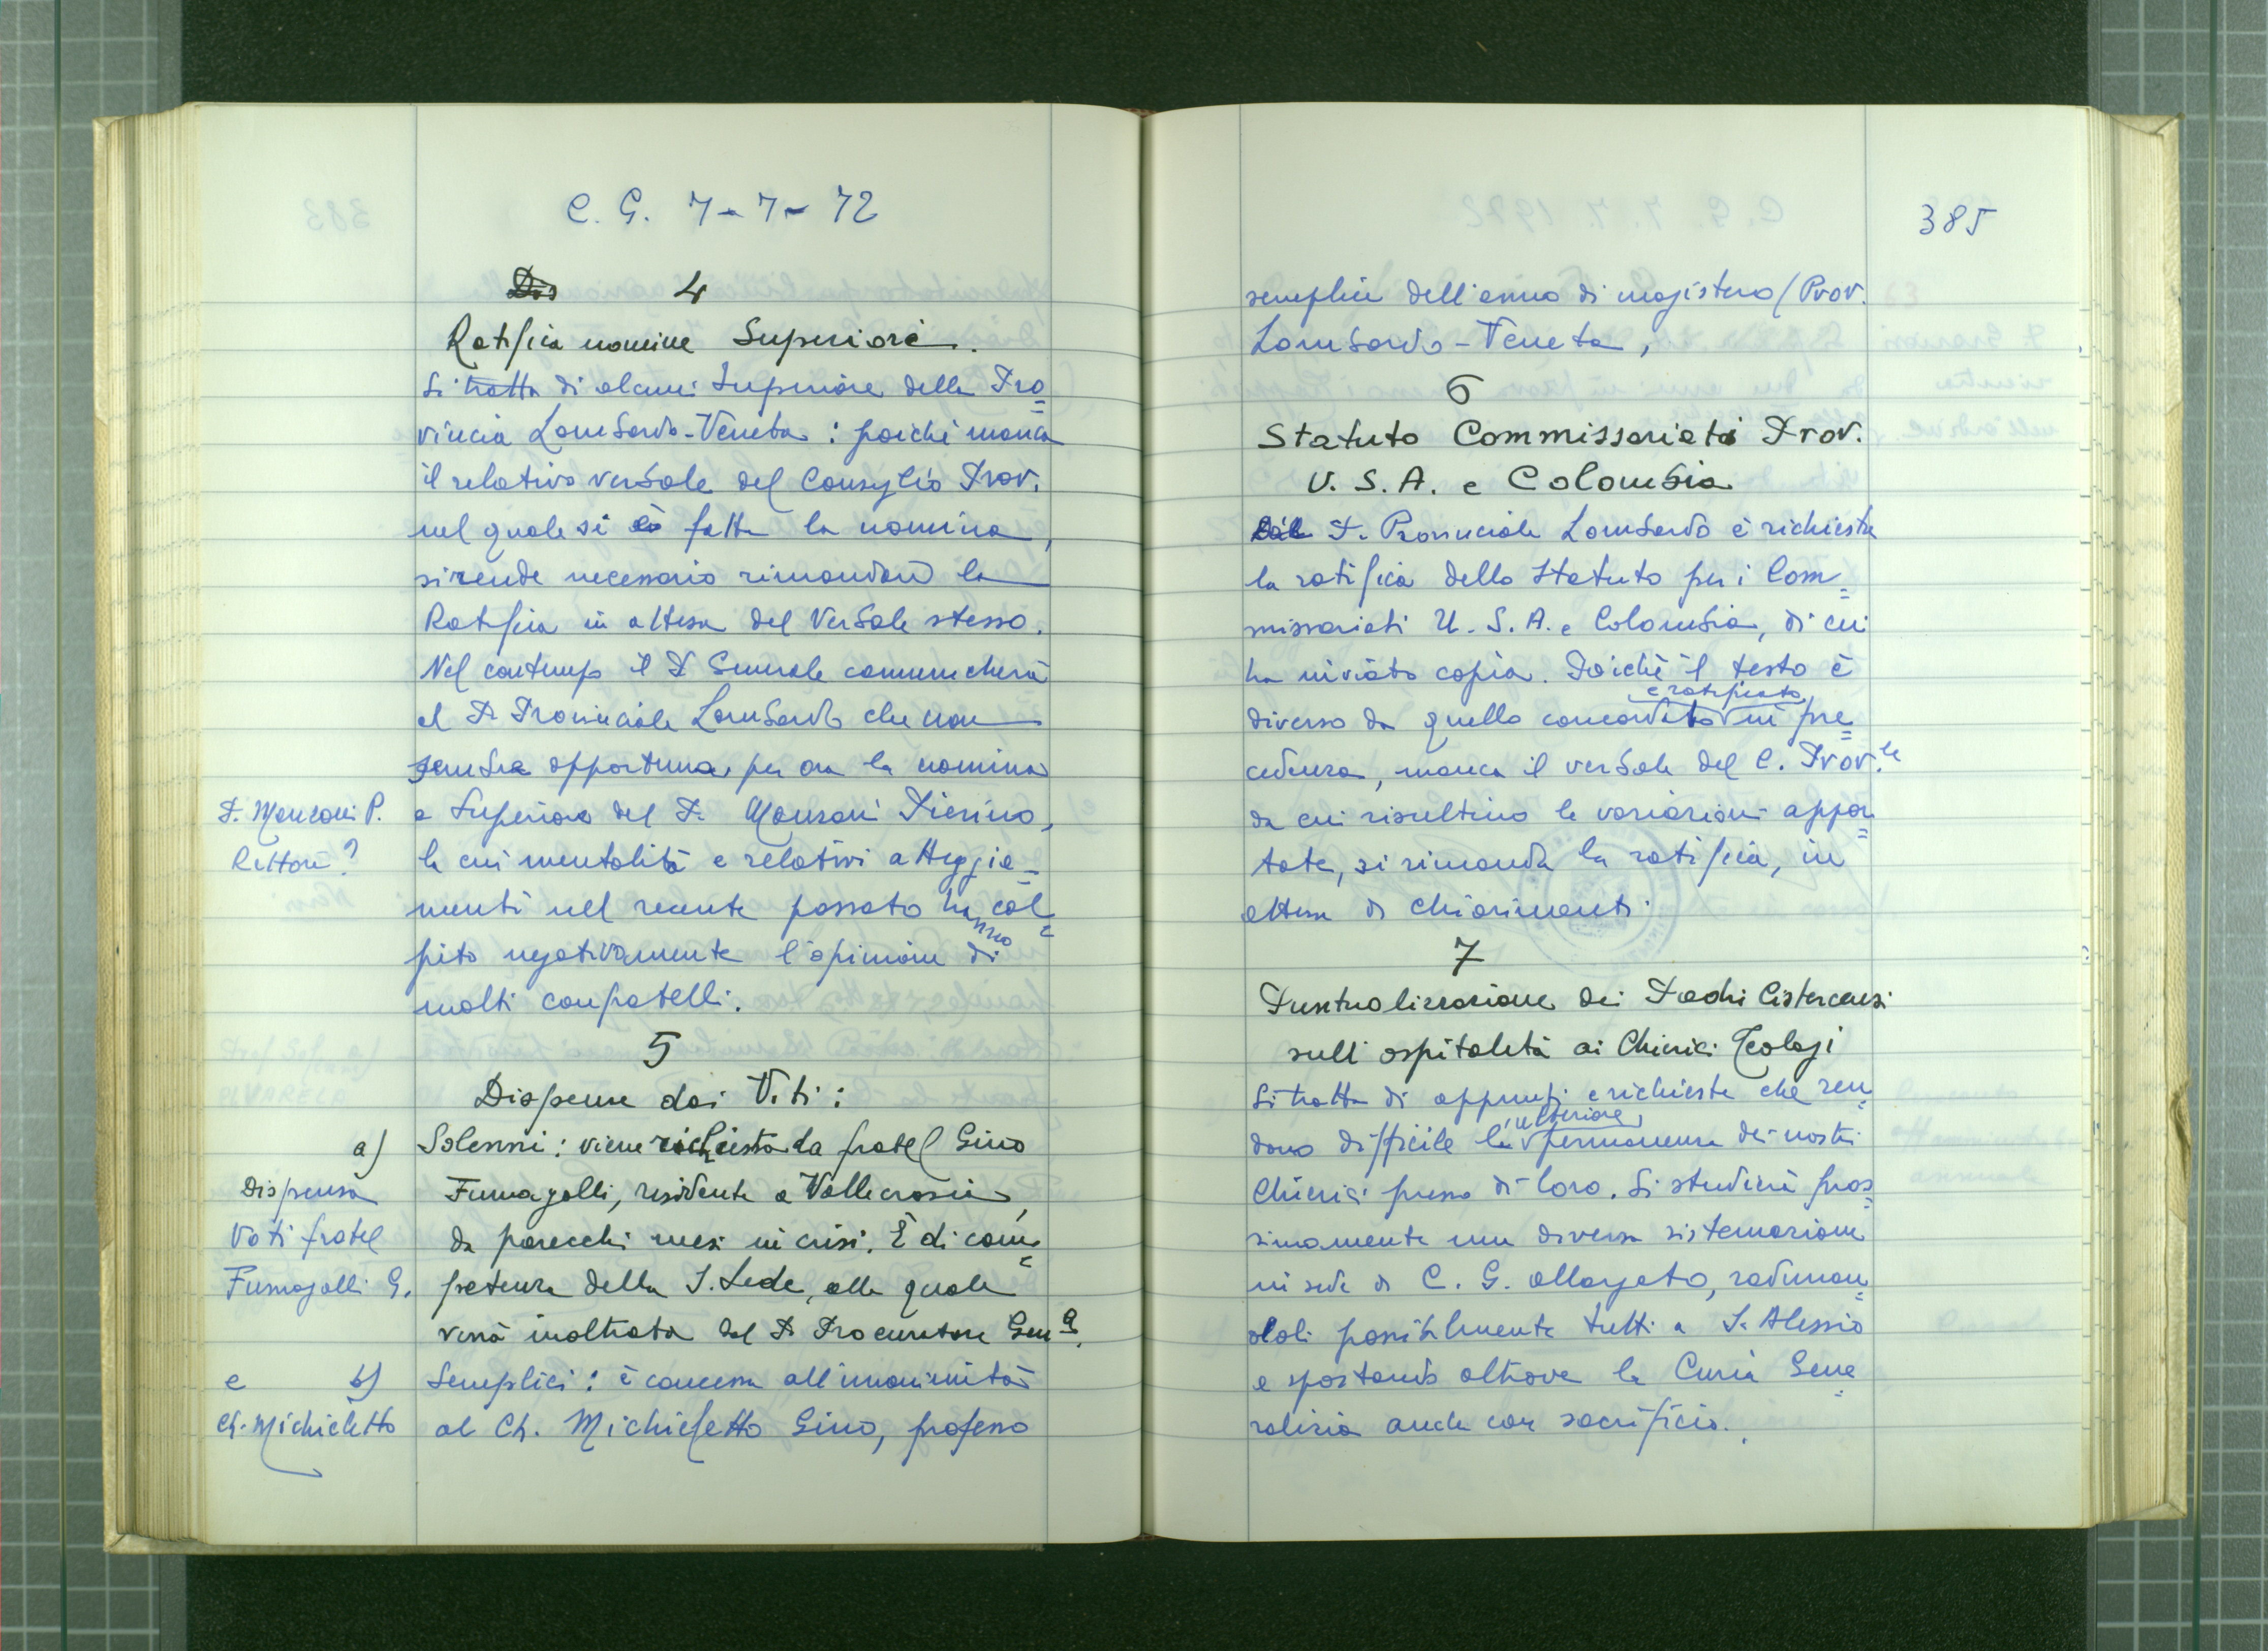 C. G. 7-7-72
4
Ratifica nomine Superiori.
Si tratta di alcuni Superiori della Pro=
vincia Lombardo-Veneta: poiché manca
il relativo verbale del Consiglio Prov.
nel quale si è fatta la nomina,
si rende necessario rimandare la
Ratifica in attesa del Verbale stesso.
Nel contempo il P. Generale comunicherà
al P. Provinciale Lombardo che non
sembra opportuna, per ora la nomina
P. Manzoni P.
Rettore?
a Superiore del P. Manzoni Pierino,
la cui mentalità e relativi atteggia=
menti nel recente passato hanno col=
pito negativamente l'opinione di
molti confratelli.
5
Dispense dai Voti:
a) Solenni: viene richiesta da fratel Gino
Dispensa
Voti fratel
Fumagalli G.
Fumagalli, residente a Vallecrosia,
da parecchi mesi in crisi. È di com=
petenza della S. Sede, alla quale
verrà inoltrata dal P. Procuratore Gen.e
e
Ch. Michieletto
b) Semplici: è concessa all'unanimità
al Ch. Michieletto Gino, professo
385
semplice dell'anno di magistero (Prov.
Lombardo-Veneta,
6
Statuto Commissariati Prov.
U. S. A. e Colombia
Dal P. Provinciale Lombardo è richiesta
la ratifica dello Statuto per i Com=
missariati U. S. A. e Colombia, di cui
ha inviato copia. Poiché il testo è
diverso da quello concordato e ratificato in pre=
cedenza, manca il verbale del C. Prov.le
da cui risultino le variazioni appor=
tate, si rimanda la ratifica, in
attesa di chiarimenti.
7
Puntualizzazione dei Padri Cistercensi
sull'ospitalità ai Chierici Teologi
Si tratta di appunti e richieste che ren=
dono difficile la ulteriore permanenza dei nostri
Chierici presso di loro. Si studierà pros=
simamente una diversa sistemazione
in sede di C. G. allargato, radunan=
doli possibilmente tutti a S. Alessio
e spostando altrove la Curia Gene=
ralizia anche con sacrificio.